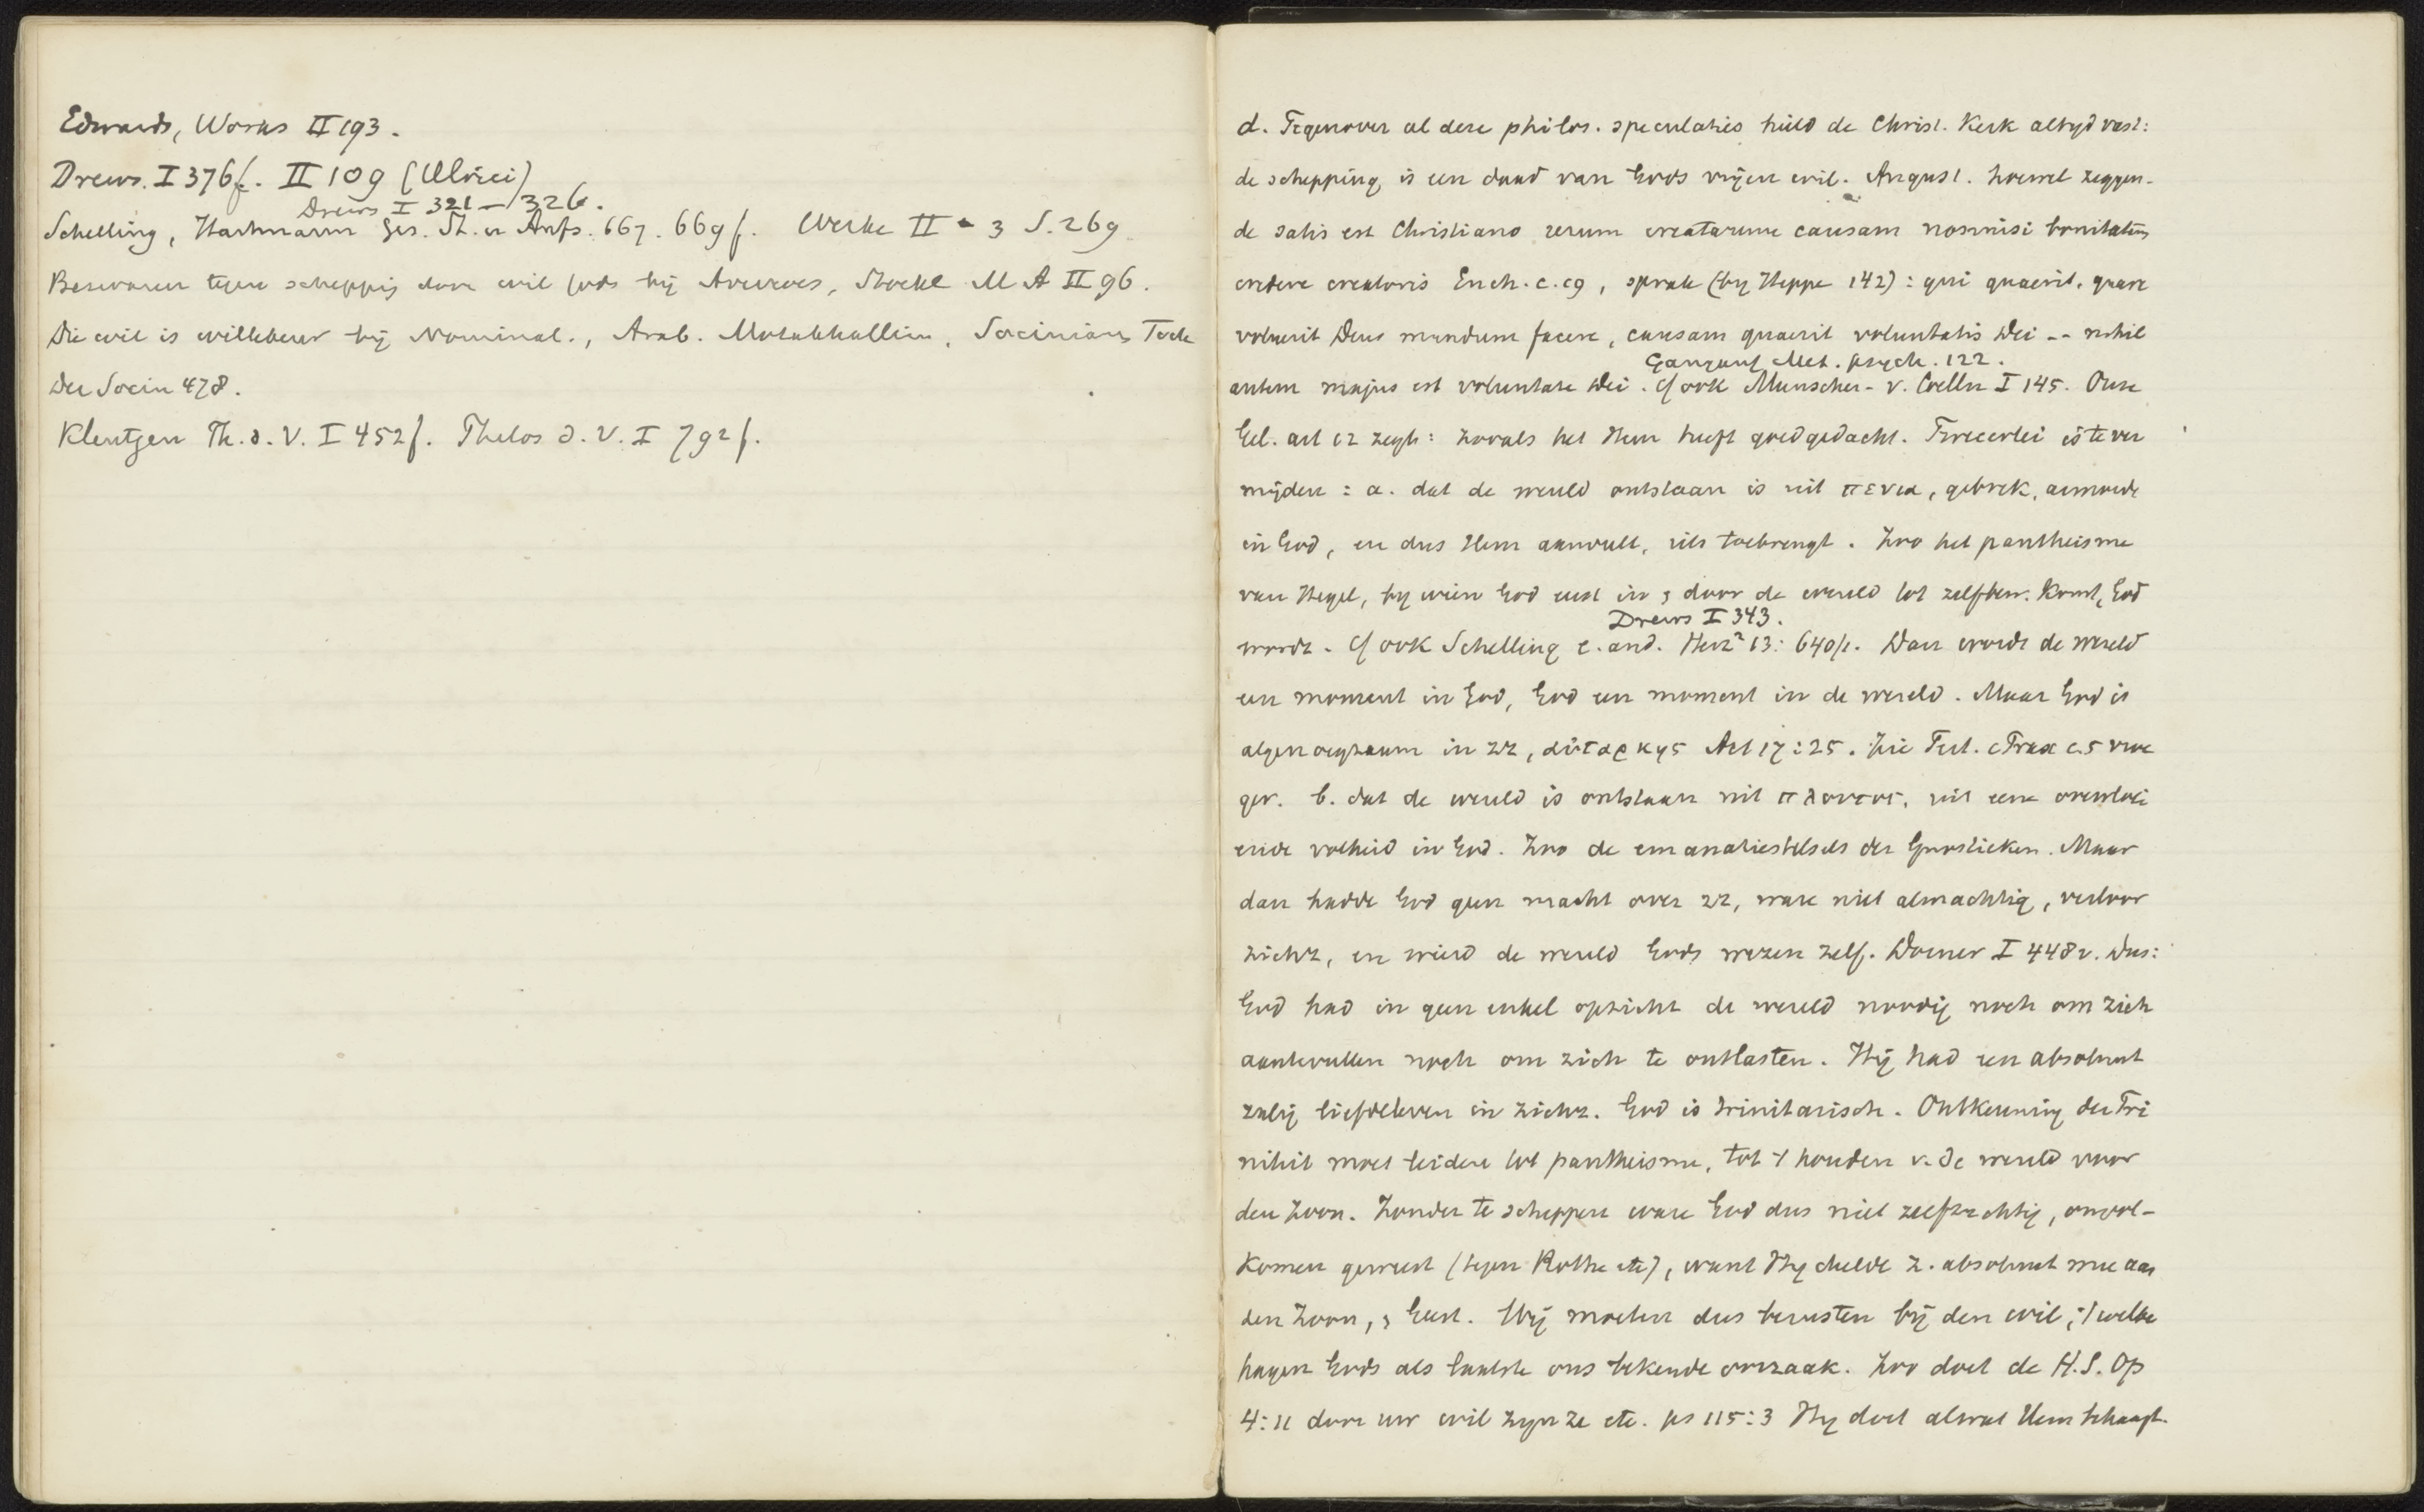 Edwards, Works II 193.
Drews. I 376f. II 109 (Ulrici)
Drews I 321–326.
Schelling, Hartmann Ges. St. u Aufs. 667. 669 f. Werke II - 3 S. 269
Bezwaren tegen schepping door wil Gods bij Averroes, Stockl M A II 96.
Die wil is willekeur bij Nominal., Arab. Motakhallim, Socinians Fock
Der Socin 478.
Kleutgen Th. d. V. I 452 f. Philos d. V. I 792 f.
d. Tegenover al deze philos. speculaties hield de Christ. Kerk altyd vast:
de schepping is een daad van Gods vrijen wil. August. hoewel zeggen-
de satis est Christiano rerum creatarum causam nonnisi bonitatem
credere creatoris Ench. c. 9, sprak (by Heppe 142): qui quaerit, quare
voluerit Deus mundum facere, causam quaerit voluntatis Dei -- nihil
Gangauf Met. psych. 122.
autem majus est voluntate Dei. Cf ook Munscher- v. Coelln I 145. Onze
Gel. art 12 zegt: zooals het Hem heeft goedgedacht. Tweeerlei is te ver
mijden: a. dat de wereld ontstaan is uit πενια, gebrek, armoede
in God, en dus Hem aanvult, iets toebrengt. Zoo het pantheisme
van Hegel, by wien God eerst in & door de wereld tot zelfbew. komt, God
Drews I 343.
wordt. Cf ook Schelling e. and. Herz² 13: 640/1. Dan wordt de wereld
een moment in God, God een moment in de wereld. Maar God is
algenoegzaam in zz, αὐταρκης Act 17:25. Zie Tert. c Prax c. 5 vroe
ger. b. dat de wereld is ontstaan uit πλουτος, uit eene overvloei
ende volheid in God. Zoo de emanatiestelsels der Gnostieken. Maar
dan hadde God geen macht over zz, ware niet almachtig, verloor
zichz, en wierd de wereld Gods wezen zelf. Dorner I 448v. Dus:
God had in geen enkel opzicht de wereld noodig noch om zich
aantevullen noch om zich te ontlasten. Hij had een absoluut
zalig liefdeleven in zichz. God is trinitarisch. Ontkenning der Tri
niteit moet leiden tot pantheisme, tot 't houden v. de wereld voor
den Zoon. Zonder te scheppen ware God dus niet zelfzuchtig, onvol-
komen geweest (tegen Rothe etc), want Hy deelde Z. absoluut mee aan
den Zoon, & Geest. Wij moeten dus berusten bij den wil, 't welbe
hagen Gods als laatste ons bekende oorzaak. Zoo doet de H.S. Op
4:11 door uw wil zyn ze etc. ps 115:3 Hy doet alwat Hem behaagt.